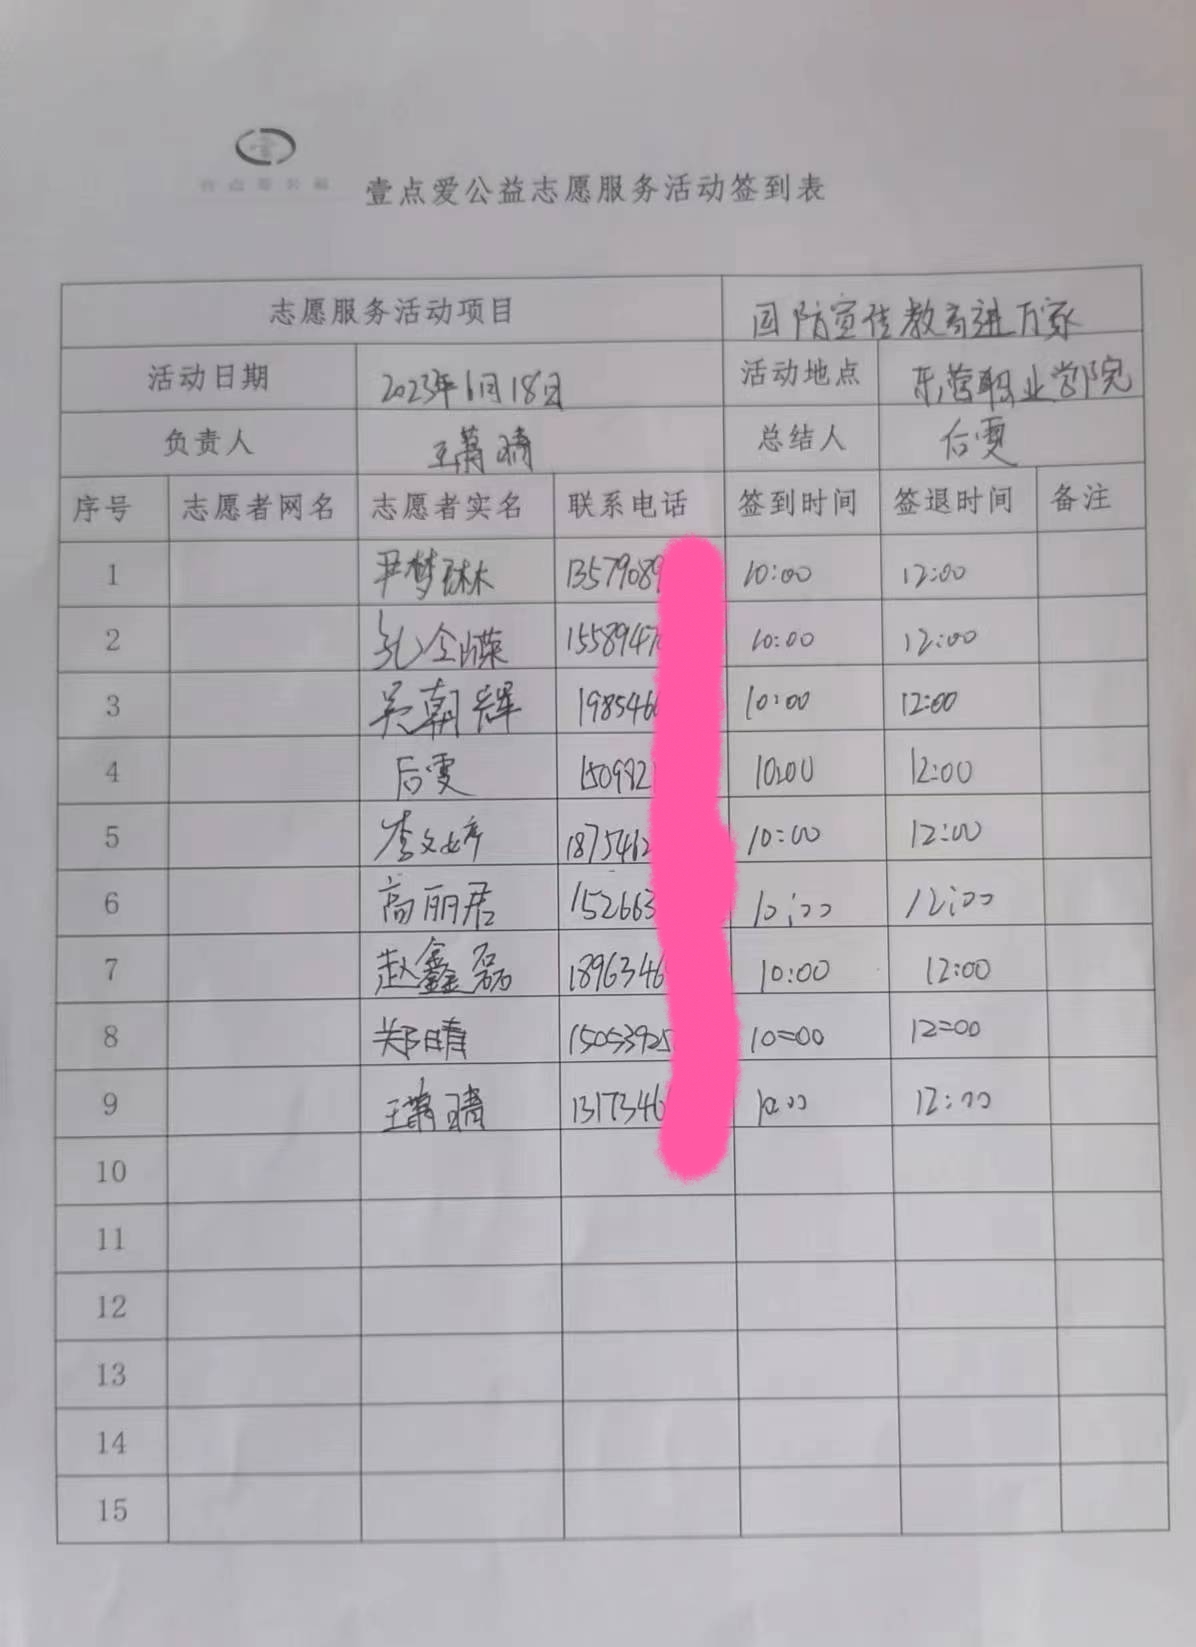 壹点爱公益
壹点爱公益志愿服务活动签到表
志愿服务活动项目 国防宣传教育进万家
活动日期 2023年6月18日 活动地点 东营职业学院
负责人 王萧晴 总结人 后雯
序号 志愿者网名 志愿者实名 联系电话 签到时间 签退时间 备注
1 尹梦琳 1357908 10:00 12:00
2 孔令 1558947 10:00 12:00
3 吴朝辉 198546 10:00 12:00
4 后雯 150982 10:00 12:00
5 李文婷 1875462 10:00 12:00
6 高丽君 152663 10:00 12:00
7 赵鑫磊 1896346 10:00 12:00
8 郑晴 15053925 10:00 12:00
9 王萧晴 1317346 10:00 12:00
10
11
12
13
14
15